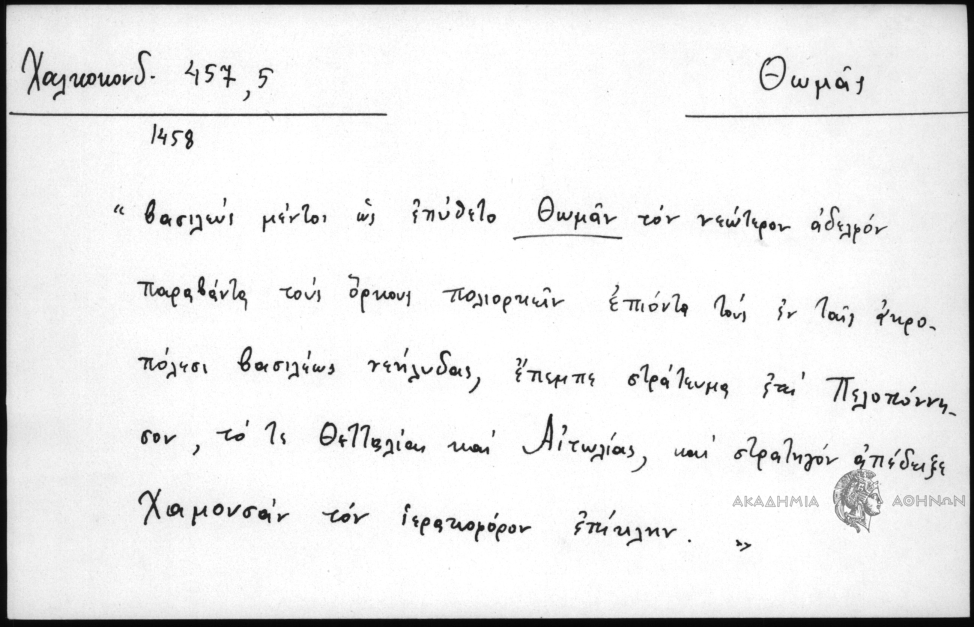 Χαλκοκονδ. 457,5
Θωμᾶς
1458
“ βασιλεύς μέντοι ὡς ἐπύθετο Θωμᾶν τόν νεώτερον ἀδελφόν
παραβάντα τούς ὅρκους πολιορκεῖν ἐπιόντα τούς ἐν ταῖς ἀκρο-
πόλεσι βασιλέως νεήλυδας, ἔπεμπε στράτευμα ἐπί Πελοπόννη-
σον, τό τε Θετταλίας καί Αἰτωλίας, καί στρατηγόν ἀπέδειξε
Χαμουσᾶν τόν ἱερακοφόρον ἐπίκλην. ”
ΑΚΑΔΗΜΙΑ ΑΘΗΝΩΝ